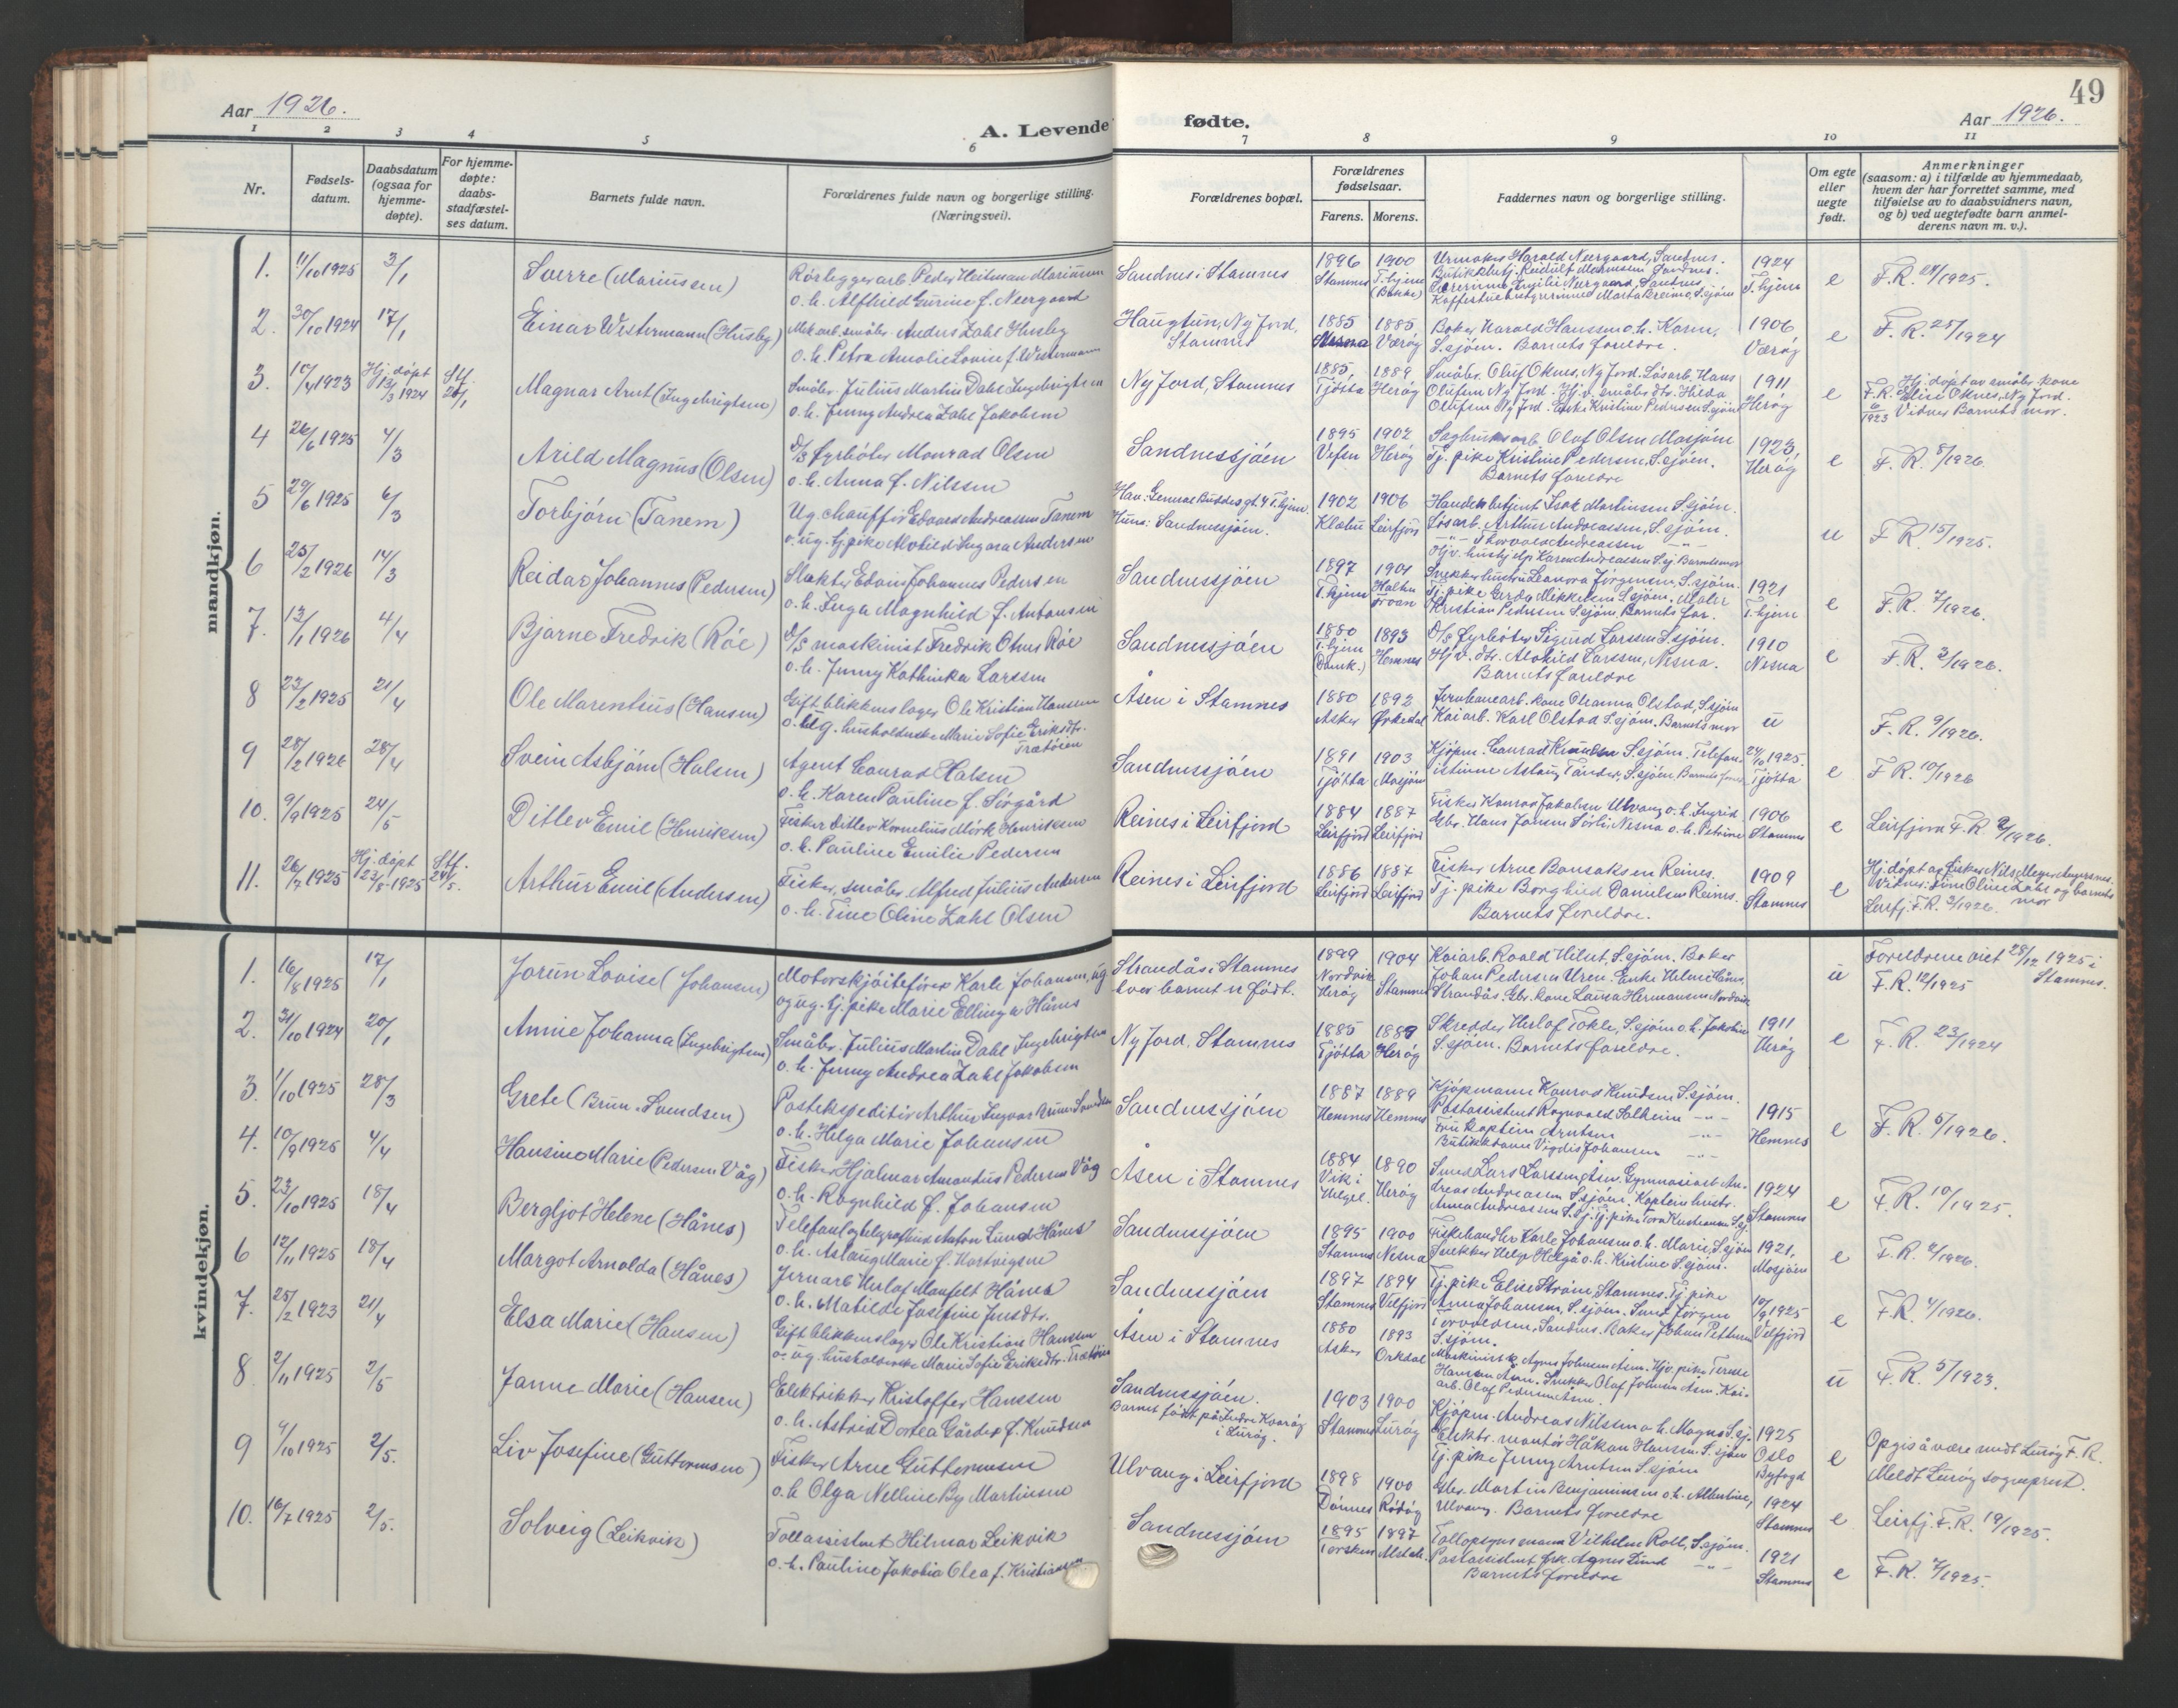 49
Aar 1926.
A. Levende fødte.
Aar 1926.
1 2 3 4 5 6 7 8 9 10 11
Nr.
Fødsels-
datum.
Daabsdatum
(ogsaa for
hjemme-
døpte).
For hjemme-
døpte:
daabs-
stadfæstel-
ses datum.
Barnets fulde navn.
Forældrenes fulde navn og borgerlige stilling.
(Næringsvei).
Forældrenes bopæl.
Forældrenes
fødselsaar.
Farens. Morens.
Faddernes navn og borgerlige stilling.
Om egte
eller
uegte
født.
Anmerkninger
(saasom: a) i tilfælde av hjemmedaab,
hvem der har forrettet samme, med
tilføielse av to daabsvidners navn,
og b) ved uegtefødte barn anmel-
derens navn m. v.).
mandkjøn.
1. 11/10 1925 3/1 Sverre (Mariussen) Rørleggerarb. Peder Heitman Mariussen
o. h. Alfhild Gurine f. Neergaard
Sandnes i Stamnes 1896 Stamnes 1900 T.hjem (Bakke)
Urmaker Harald Neergaard, Sandnes.
1924 T.hjem e F.R. 21/1925.
2. 30/10 1924 17/1 Einar Westermann (Husby) Mek.arb. småbr. Anders Zahl Husby
o. h. Petra Amalie Lovise f. Westermann
Haugtun, Ny Jord, Stamnes 1885 1885 Værøy
Baker Harald Hanssen o. h. Karen,
S.sjöen. Barnets foreldre.
1906 Værøy e F.R. 25/1924
3. 10/4 1923 Hj. döpt 13/3 1924 Stf. 20/1 Magnar Arnt (Ingebrigtsen) Småbr. Julius Martin Dahl Ingebrigtsen
o. h. Jenny Andrea Zahl Jakobsen
Ny Jord, Stamnes 1885. Tjötta 1889 Heröy
Småbr. Oluf Oknes, Ny Jord. Lösarb. Hans
Olufsen Ny Jord. Hj.v. småbr.dtr. Hilda
Olufsen Ny Jord. Enke Kristine Pedersen S.sjöen
1911 Heröy e Hj. döpt av småbr. kone
F.R. 6/1923 Elise Oknes, Ny Jord.
Vidner Barnets mor.
4 26/6 1925 4/3 Arild Magnus (Olsen) D/S fyrböter Monrad Olsen
o. h. Anna f. Nilssen
Sandnessjöen 1895 Vefsn 1902 Heröy
Sagbruksarb. Olaf Olsen Mosjöen
Tj. pike Kristine Pedersen, S.sjöen.
Barnets foreldre
1923, Heröy e F.R. 8/1926.
5 29/6 1925 6/3 Torbjörn (Tanem) Ug. Chaufför Edvard Andreassen Tanem
o. ug. tj.pike Alvhild Ingara Andersen
Hun: Sandnessjöen. 1902 Klæbu 1906 Leirfjord
Handelsbetjent Isak Martinsen S.sjöen.
Lösarb. Arthur Andreassen, S.sjöen.
u F.R. 15/1925.
6 25/2 1926 14/3 Reidar Johannes (Pedersen) Slakter Edvin Johannes Pedersen
o. h. Inga Magnhild f. Antonsen
Sandnessjöen 1897 T.hjem 1901
Snekkerhustru Leanora Jörgensen, S.sjöen.
Tj. pike Gerda Mikkelsen S.sjöen. Maler
Kristian Pedersen S.sjöen, Barnets far.
1921 T.hjem e F.R. 7/1926.
7. 13/1 1926 4/4 Bjarne Fredrik (Röe) D/S maskinist Fredrik Otnes Röe
o. h. Jenny Kathinka Larssen
Sandnessjöen 1880 T.hjem 1893 Hemnes
D/S fyrböter Sigurd Larssen S.sjöen.
Hj.v. dtr. Alvhild Larssen, Nesna.
Barnets foreldre
1910 Nesna e F.R. 2/1926.
8 23/2 1925 21/4 Ole Marentius (Hansen) Gift blikkenslager Ole Kristian Hansen
o. ug. husholderske Marie Sofie Eriksdtr.
Træthöien
Åsen i Stamnes 1880 Asker 1892 Orkedal
Jernbanearb. kone Oleanna Olstad, S.sjöen
Kaiarb. Karl Olstad S.sjöen. Barnets mor
u F.R. 9/1926.
9 28/2 1926 28/4 Svein Asbjörn (Halsen) Agent Conrad Halsen
o. h. Karen Pauline f. Sörgård
Sandnessjöen 1891 Tjötta 1903 Mosjöen
Kjöpm. Conrad Knudsen S.sjöen. Telefon-
istinne Aslaug Tander, S.sjöen, Barnets
24/10 1925. Tjötta e F.R. 10/1926
10. 9/9 1925 24/5 Ditlev Emil (Henriksen) Fisker Ditlev Kornelius Mörk Henriksen
o. h. Pauline Emilie Pedersen
Reines i Leirfjord 1884 Leirfjord 1887 Leirfjord
Fisker Konrad Jakobsen Ulvang o. h. Ingrid
Gbr. Hans Jansen Sörli, Nesna o. h. Petrine
1906 Stamnes e Leirfjord F.R. 2/1926.
11. 26/7 1925 Hj. döpt 23/8 1925 Stf. 24/5. Arthur Emil (Andersen) Fisker, småbr. Alfred Julius Andersen
o. h. Tine Oline Zahl Olsen
Reines i Leirfjord 1886 Leirfjord 1887 Leirfjord
Fisker Arne Bonsaksen Reines.
Tj. pike Borghild Danielsen Reines.
Barnets foreldre.
1909 Stamnes e Hj. döpt av fisker Nils Meyer
Vidner: Tine Oline Zahl og barnets mor
Leirfj. F.R. 3/1926.
kvindekjøn.
1. 16/8 1925 17/1 Jorun Lovise (Johansen) Motorskjöitefører Karle Johansen, ug
og ug. tj. pike Marie Ellinga Hånes
Strandås i Stamnes
hvor barnet er födt. 1899 Nordvik Heröy 1904 Stamnes
Kaiarb. Roald Hilnt, S.sjöen. Baker
Johan Pedersen Uren. Enke Helene Hånes,
Strandås. Gbr. kone Laura Hermansen Nordvik
u Foreldrene viet 28/12 1925 i
F.R. 12/1925 Stamnes.
2. 31/10 1924 20/1 Annie Johanna (Ingebrigtsen) Småbr. Julius Martin Dahl Ingebrigtsen
o. h. Jenny Andrea Zahl Jakobsen
Ny Jord, Stamnes 1885 Tjötta 1889 Heröy
Skredder Herlof Tokle, S.sjöen o. h. Jakobine
S.sjöen. Barnets foreldre.
1911 Heröy e F.R. 23/1924
3. 1/10 1925 28/3 Grete (Brun-Svendsen) Postekspeditör Arthur Ingvar Brun Svendsen
o. h. Helga Marie Johansen
Sandnessjöen 1887 Hemnes 1889 Hemnes
Kjöpmann Konrad Knudsen S.sjöen.
Postassistent Ragnvald Solheim -"-
Fru kaptein Arntsen -"-
Butikkdame Vigdis Johansen -"-
1915 Hemnes e F.R. 5/1926.
4. 10/9 1925 4/4 Hansine Marie (Pedersen Våg) Fisker Hjalmar Amandus Pedersen Våg
o. h. Ragnhild f. Johansen
Åsen i Stamnes 1884 Vik i Helgel. 1890 Heröy
Smed Lars Larssen Åsen. Gymnasiast An-
dreas Andreassen S.sjöen. Kaptein hustr.
Anna Andreassen S.sj. Tj. pike Tora Kristiansen S.sj.
1924 Stamnes e F.R. 10/1925.
5. 23/10 1925 18/4 Bergljot Helene (Hånes) Telefon og telegrafbud Anton Lund Hånes
o. h. Aslaug Marie f. Hartvigsen
Sandnessjöen 1895 Stamnes 1900 Nesna
Fiskehandler Karle Johansen o. h. Marie, S.sjöen
Snekker Help Helgå o. h. Kristine S.sjöen.
1921, Mosjöen e F.R. 2/1926.
6 12/11 1925 18/4 Margot Arnolda (Hånes) Jernarb. Herlof Manfelt Hånes
o. h. Matilde Josefine Jensdtr.
Sandnessjöen 1897 Stamnes 1894 Velfjord
Tj. pike Elise Ström, Stamnes. Tj. pike
Anna Johansen, S.sjöen. Smed Jörgen
Torvaldsen, Sandnes. Baker Johan Pettersen
S.sjöen.
10/9 1925 Velfjord e F.R. 4/1926.
7. 25/2 1923 21/4 Elsa Marie (Hansen) Gift blikkenslager Ole Kristian Hanssen
o. ug. husholderske Marie Sofie Eriksdtr. Træthöien
Åsen i Stamnes 1880 Asker 1893 Orkdal
Maskinist k. Agnes Johnsen Åsen. Hjv. pike
Hansen Åsen. Snekker Olaf Johnsen Åsen. Kai-
arb. Olaf Pedersen Åsen.
u F.R. 5/1923.
8 2/11 1925 2/5 Janne Marie (Hansen) Elektriker Kristoffer Hanssen
o. h. Astrid Dortea Gårder f. Knudsen
Sandnessjöen.
Barnet födt på Indre Kvaröy
i Luröy. 1903 Stamnes 1900 Luröy
Kjöpm. Andreas Nilssen o. h. Magna S.sj.
Elektr. montör Håkon Hansen S.sjöen
Tj. pike Jenny Arntsen S.sjöen
1925 Oslo Byfogd e Opgis å være meldt Luröy F.R.
Meldt Luröy sogneprest.
9 4/10 1925 2/5. Liv Josefine (Guttormsen) Fisker Arne Guttormsen
o. h Olga Nelline By Martinsen
Ulvang i Leirfjord 1898 Dönnes 1900 Rödöy
Gbr. Martin Benjaminsen o. h. Albertine,
Ulvang. Barnets foreldre
1924 Stamnes e Leirfj. F.R. 19/1925.
10. 16/7 1925 2/5. Solveig (Leikvik) Tollassistent Hilmar Leikvik
o. h. Pauline Jakobia Olea f. Kristiansen
Sandnessjöen 1895 Torsken 1897 Alstah.
Tollopsynsmann Vilhelm Roll, S.sjöen.
Postassistent frk. Agnes Lund -"-
Barnets foreldre
1921 Stamnes e F.R. 7/1925.